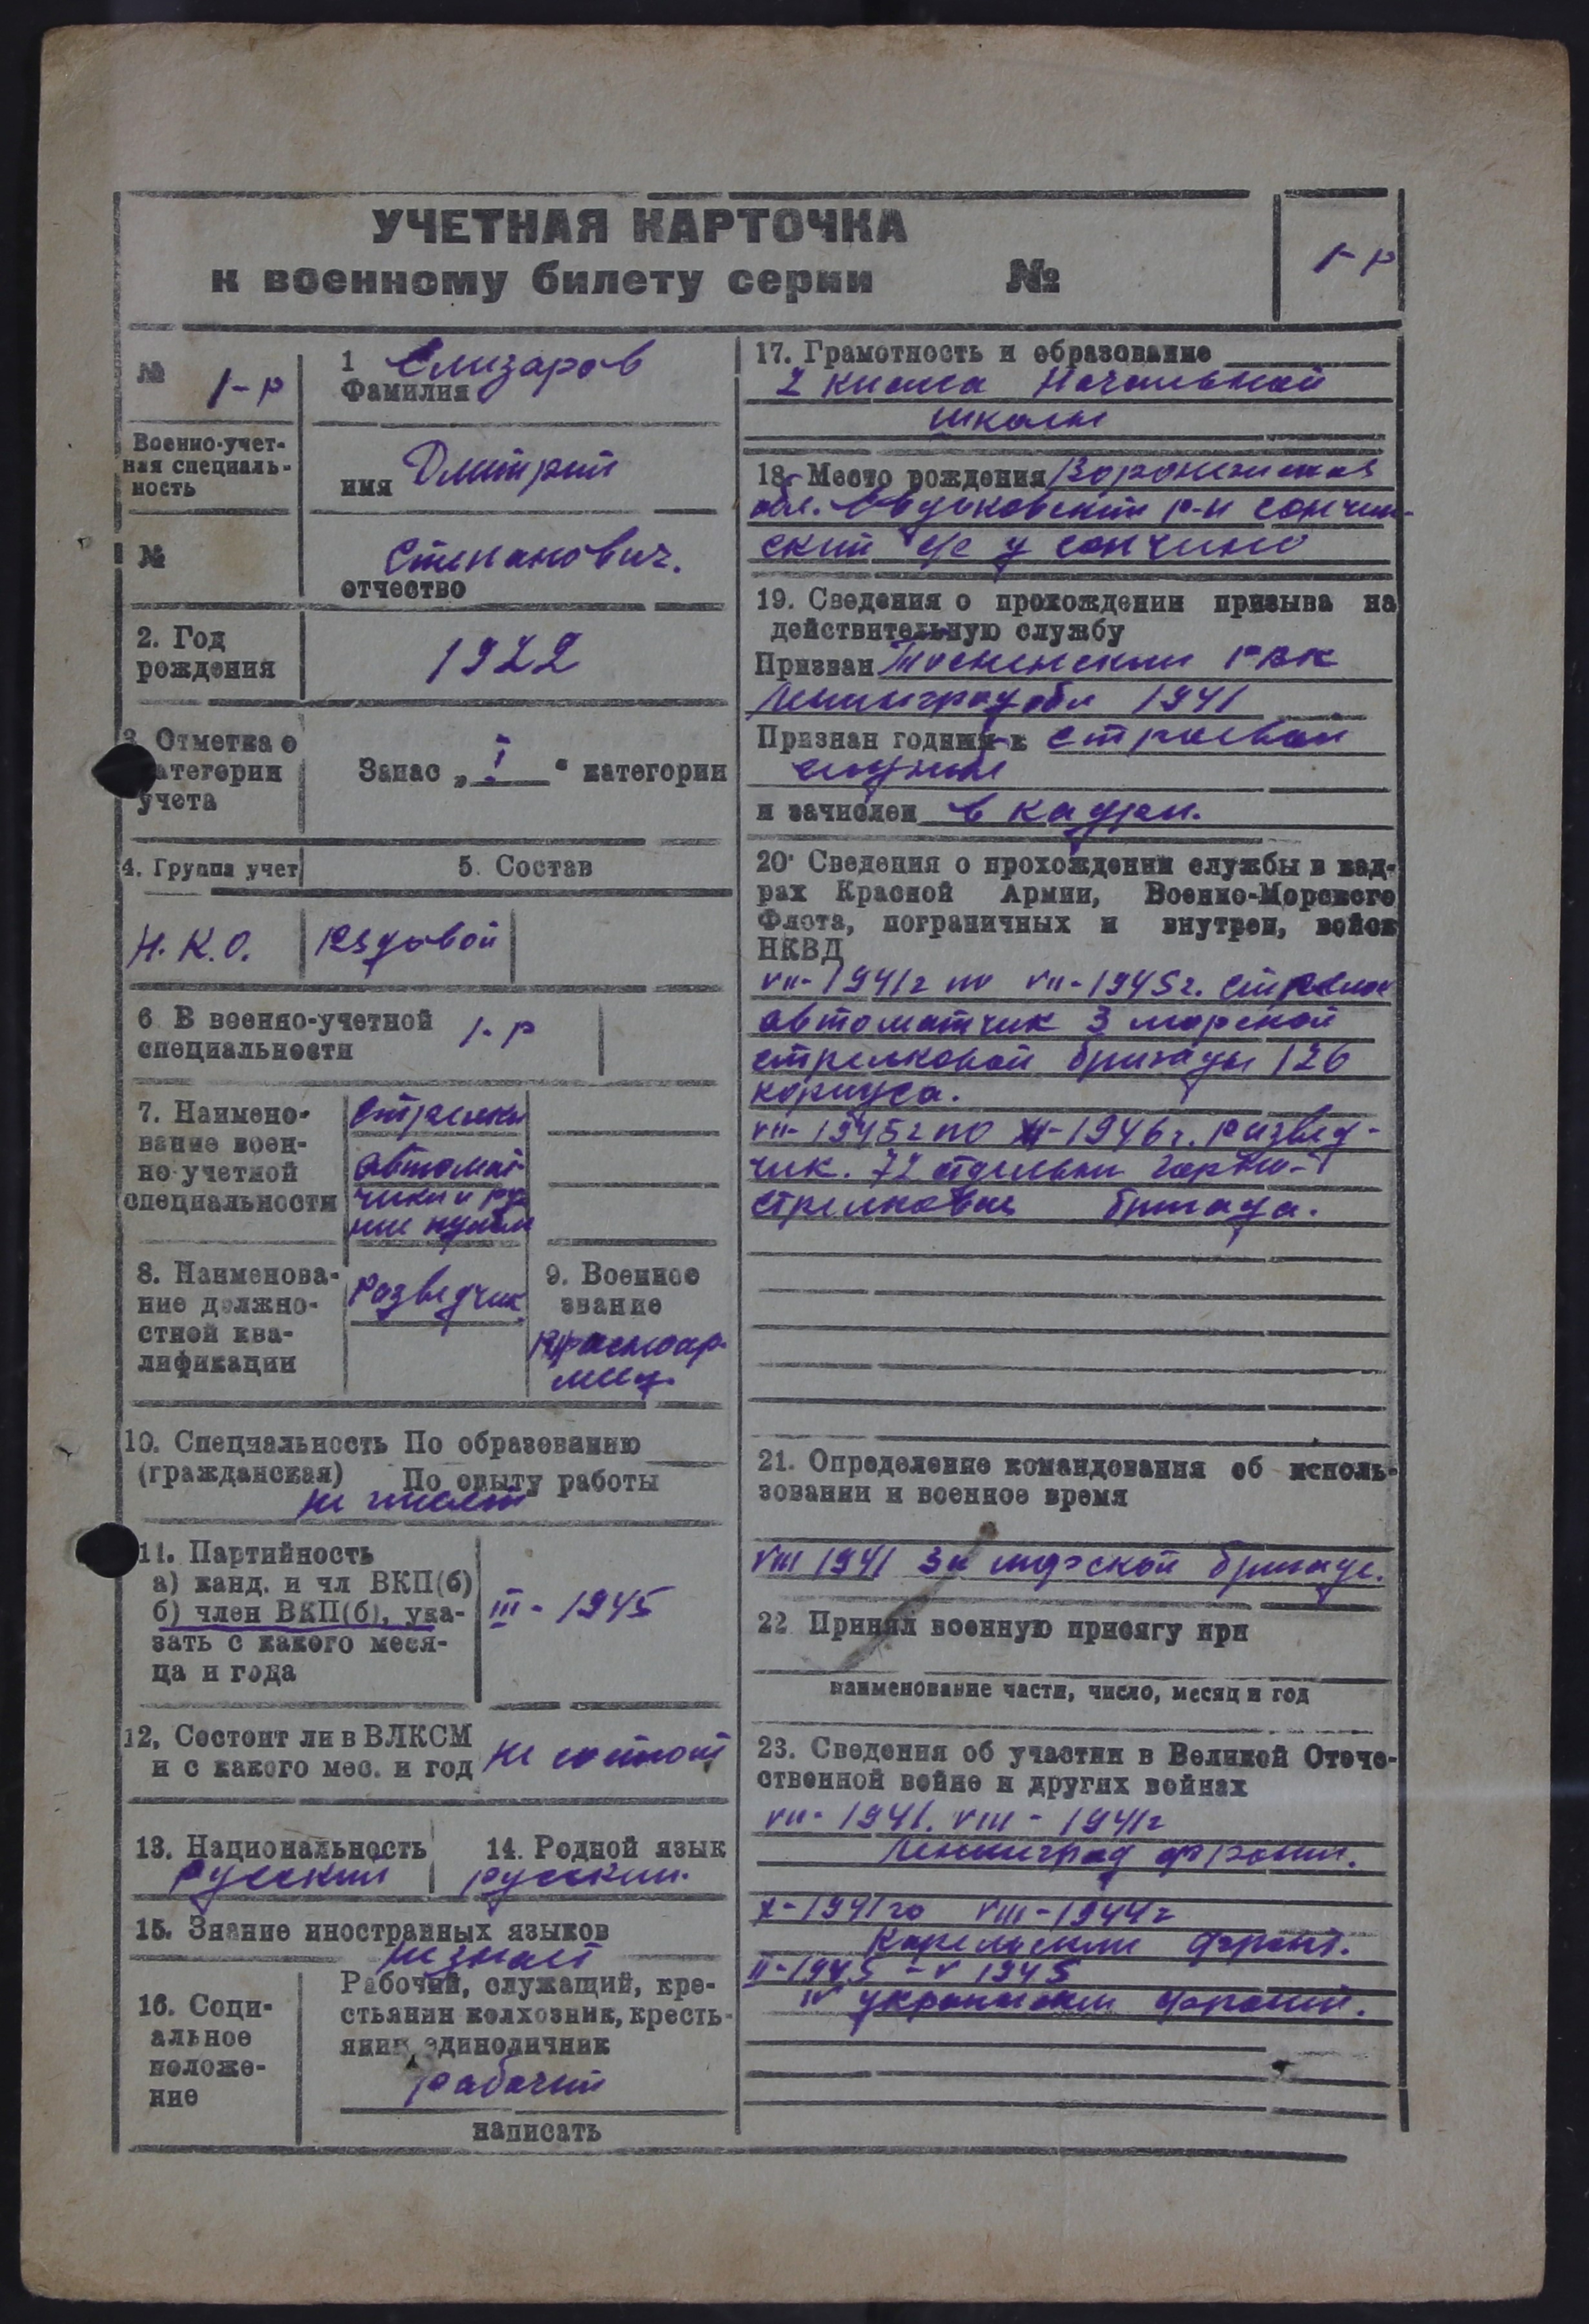 УЧЕТНАЯ КАРТОЧКА
к военному билету серии №
1-р
№ 1-р
Военно-учет-
ная специаль-
ность
№
1 Елизаров
Фамилия
имя Дмитрий
Степанович.
отчество
2. Год
рождения
1922
3. Отметка о
категории
учета
Запас „ I “ категории
4. Группа учет
5. Состав
Н.К.О.
Рядовой
6 В военно-учетной
специальности
1-р
7. Наимено-
вание воен-
но-учетной
специальности
Стрелки
автомат-
чики и руч
ные пулем
8. Наименова-
ние должно-
стной ква-
лификации
Разведчик
9. Военное
звание
Красноар-
меец.
10. Специальность По образованию
(гражданская) По опыту работы
не имеет
11. Партийность
а) канд. и чл ВКП(б)
б) член ВКП(б), ука-
зать с какого меся-
ца и года
III - 1945
12. Состоит ли в ВЛКСМ
и с какого мес. и год
не состоит
13. Национальность
русский
14. Родной язык
русский.
15. Знание иностранных языков
не знает
16. Соци-
альное
положе-
ние
Рабочий, служащий, кре-
стьянин колхозник, кресть-
янин единоличник
рабочий
написать
17. Грамотность и образование
2 класса Начальной
школы
18. Место рождения Воронежская
обл. р-н Сончин-
ский с/с Сончино
19. Сведения о прохождении призыва на
действительную службу
Призван Тосненским РВК
Ленинград обл 1941
Признан годным к строевой
службе
и зачислен в кадры.
20. Сведения о прохождении службы в кад-
рах Красной Армии, Военно-Морского
Флота, пограничных и внутрен, войск
НКВД
VII-1941г по VII-1945г. стрелок
автоматчик 3 морской
стрелковой бригады 126
корпуса.
VII-1945г по -1946г. развед-
чик. 72 отдельн горно-
стрелковая бригада.
21. Определение командования об исполь-
зовании и военное время
VIII 1941 3я морской бригаде.
22 Принял военную присягу при
наименование части, число, месяц и год
23. Сведения об участии в Великой Отече-
ственной войне и других войнах
VII-1941. VIII-1941г
Ленинград фронт.
X-1941 по VIII-1944г
Карельский фронт.
II-1945 - V 1945
IV украинский фронт.